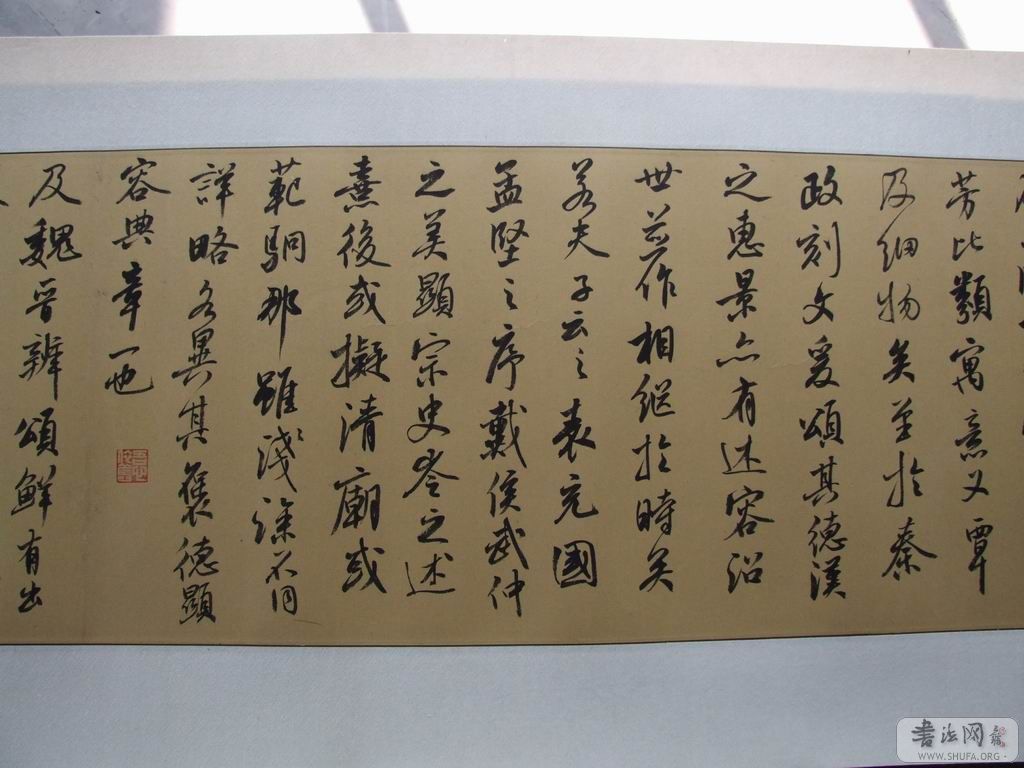 芳比類寓意又覃
及細物矣至於秦
政刻文爰頌其德漢
之惠景亦有述容沿
世並作相繼於時矣
若夫子云之表充國
孟堅之序戴侯武仲
之美顯宗史岑之述
熹後或擬清廟或
範駉那雖淺深不同
詳略各異其褒德顯
容典章一也
及魏晋辨頌鮮有出
書法网
WWW.SHUFA.ORG